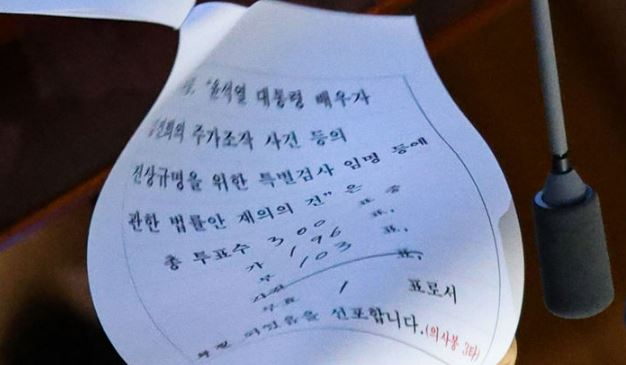 "윤석열 대통령 배우자
김건희의 주가조작 사건 등의
진상규명을 위한 특별검사 임명 등에
관한 법률안 재의의 건"은
총 투표수 300 표 중
가 196 표,
부 103 표,
기권 표,
무효 1 표로서
부결 되었음을 선포합니다.(의사봉 3타)